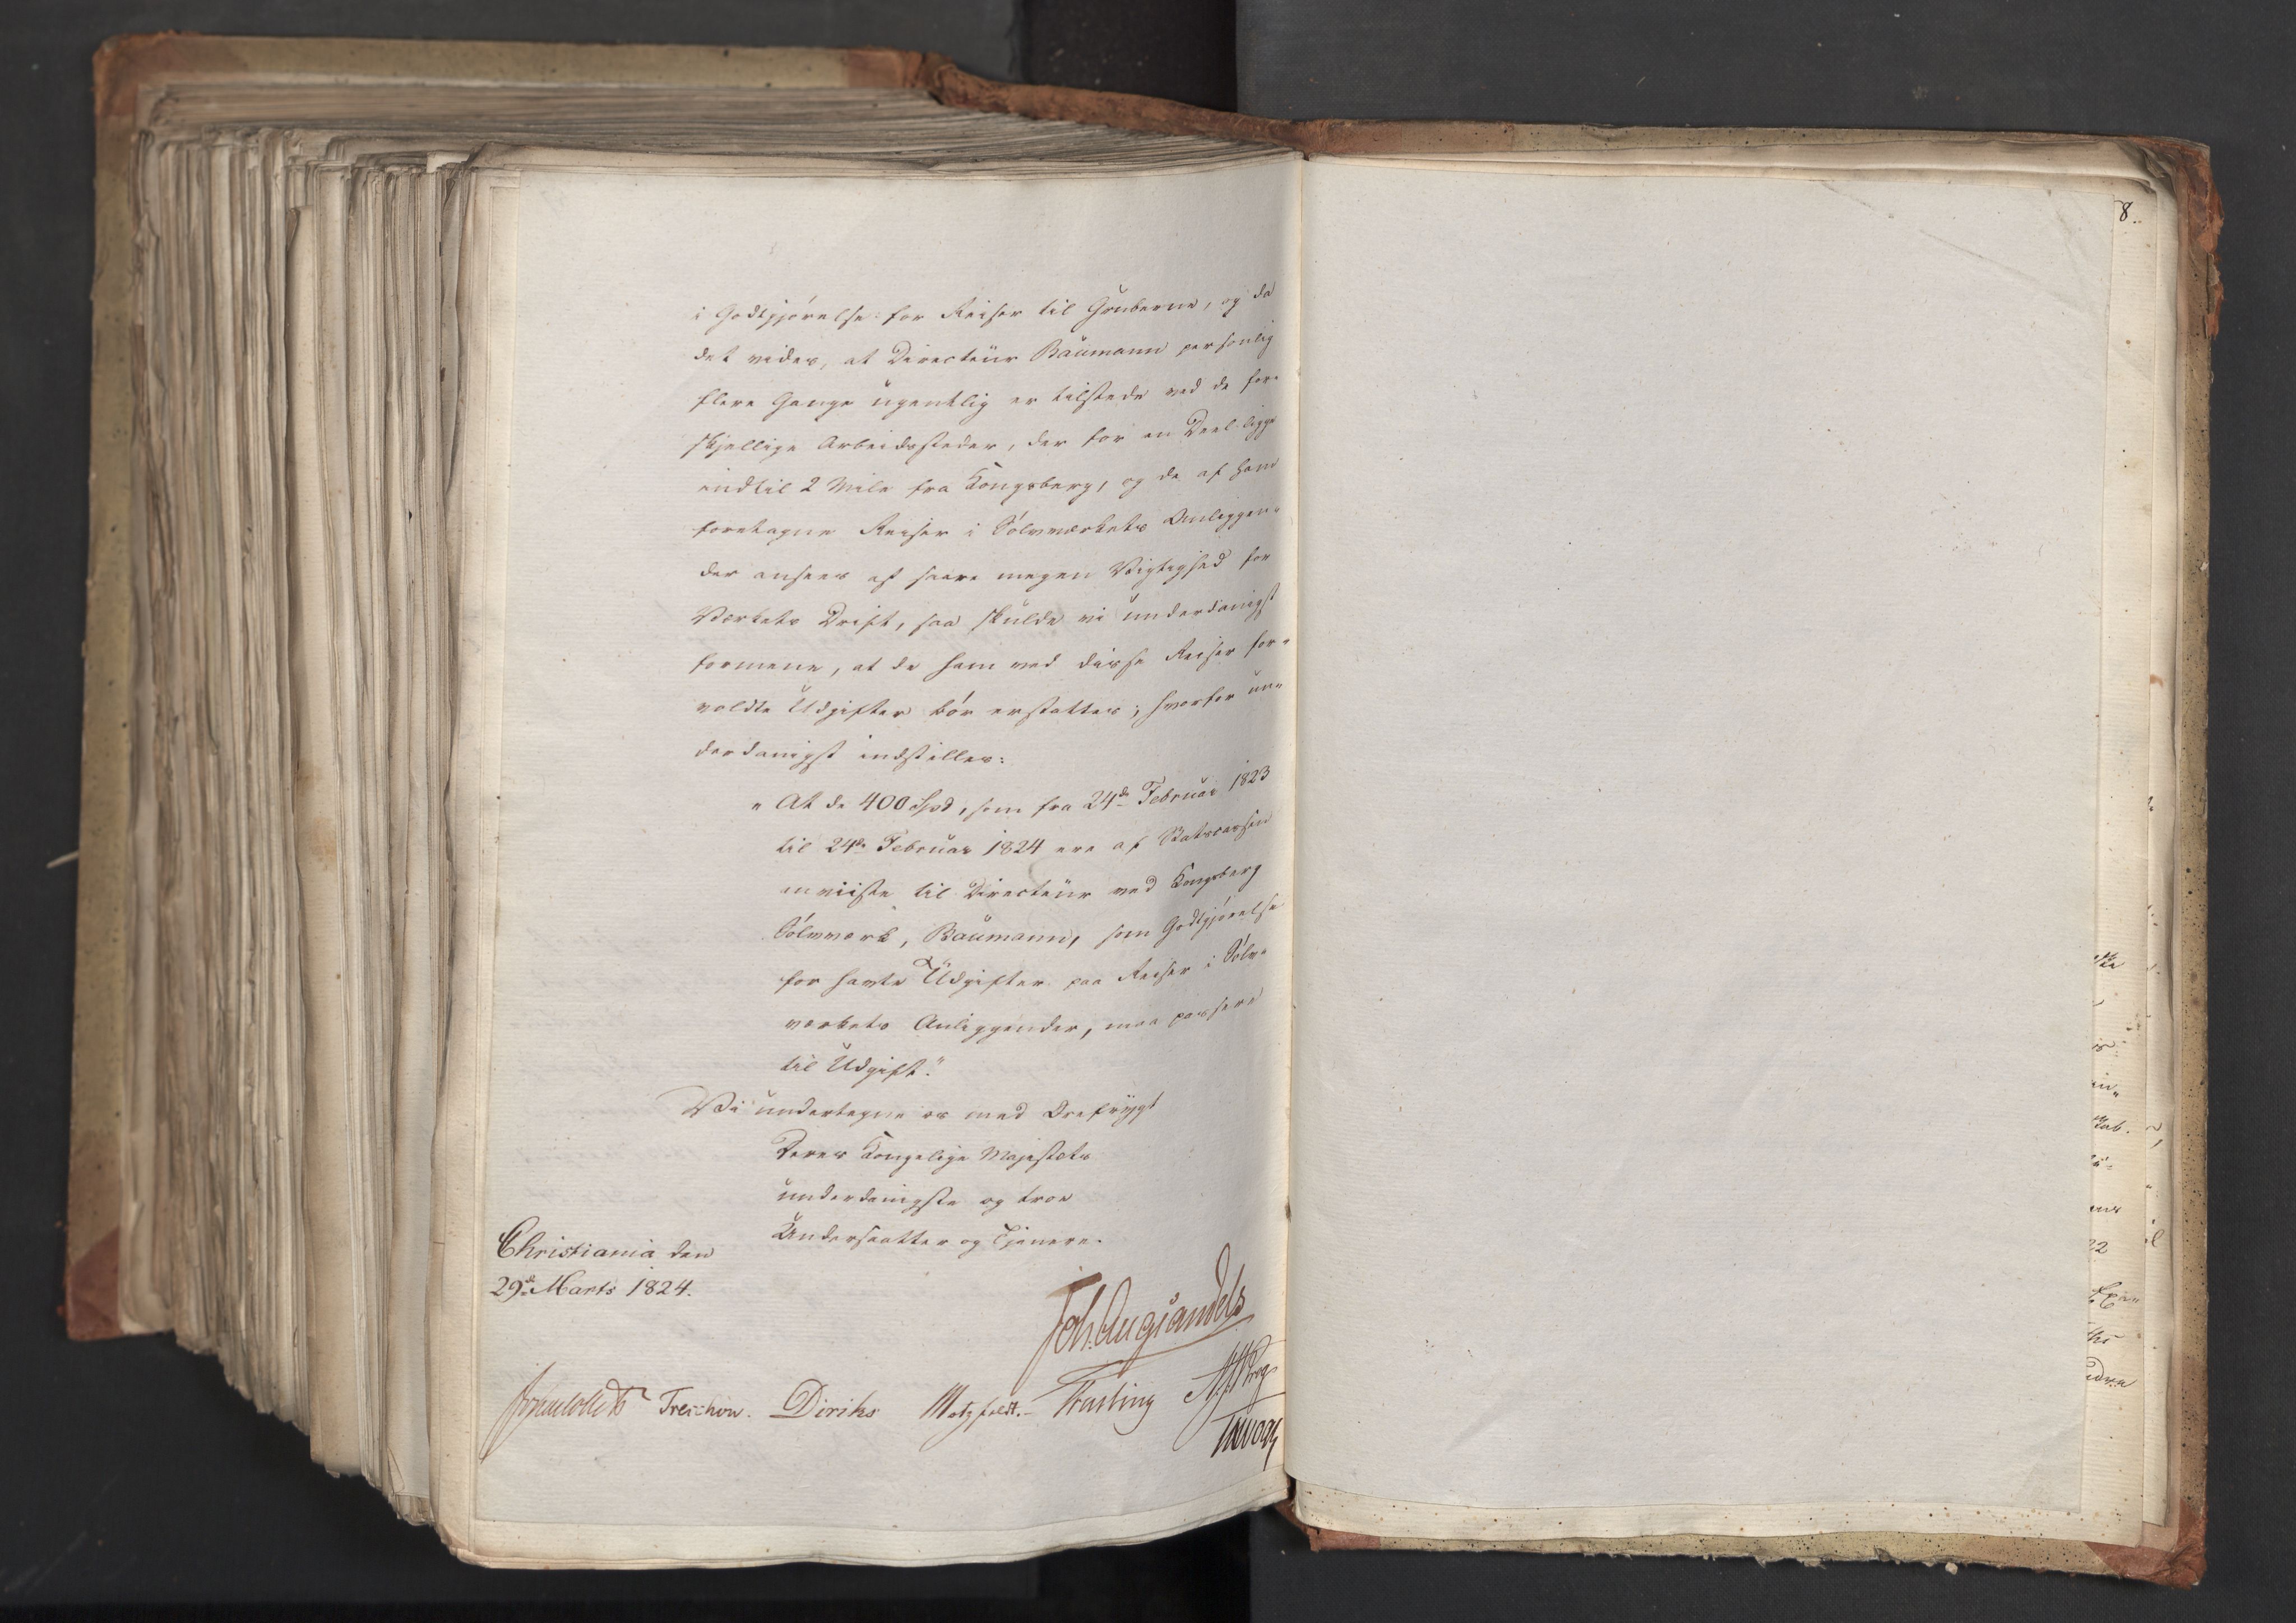 i Godtgjørelse for Reiser til Gruberne, og da
det vides, at Directeur Baumann personlig
flere Gange ugentlig er tilstede ved de for-
skjellige Arbeidssteder, der for en Deel ligge
indtil 2 Mile fra Kongsberg, og de af ham
foretagne Reiser i Sølvværkets Anliggen-
der ansees af saare megen Vigtighed for
Værkets Drift, saa skulde vi underdanigst
formene, at de ham ved disse Reiser for-
voldte Udgifter bør erstattes; hvorfor un-
derdanigst indstilles:
"At de 400 Spd, som fra 24de Februar 1823
til 24de Februar 1824 ere af Statscassen
anviiste til Directeur ved Kongsberg
Sølvværk, Baumann, som Godtgjørelse
for havte Udgifter paa Reiser i Sølv-
værkets Anliggender, maa passere
til Udgift."
Vi undertegne os med Ærefrygt
Deres Kongelige Majestæts
underdanigste og troe
Undersaatter og Tjenere.
Christiania den
29de Marts 1824.
Joh. Aug Sandels
Jonas Collett Treschow. Diriks Motzfeldt. Fasting
8.